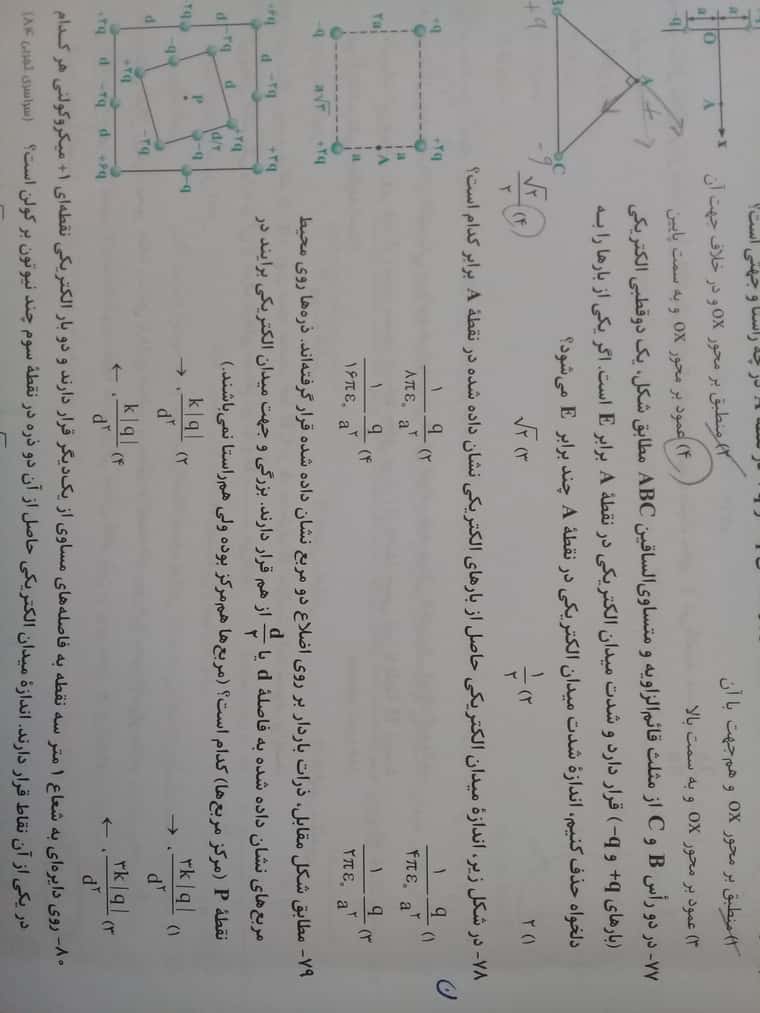 ۱) منطبق بر محور OX و هم‌جهت با آن
۲) منطبق بر محور OX و در خلاف جهت آن
۳) عمود بر محور OX و به سمت بالا
۴) عمود بر محور OX و به سمت پایین
۷۷- در دو رأس B و C از مثلث قائم‌الزاویه و متساوی‌الساقین ABC مطابق شکل، یک دوقطبی الکتریکی
(بارهای +q و -q) قرار دارد و شدت میدان الکتریکی در نقطهٔ A برابر E است. اگر یکی از بارها را به
دلخواه حذف کنیم، اندازهٔ شدت میدان الکتریکی در نقطهٔ A چند برابر E می‌شود؟
۱) ۲
۲) ۱/۲
۳) √۲
۴) √۲/۲
۷۸- در شکل زیر، اندازهٔ میدان الکتریکی حاصل از بارهای الکتریکی نشان داده شده در نقطهٔ A برابر کدام است؟
۱) ۱/۴πε۰ q/a۲
۲) ۱/۸πε۰ q/a۲
۳) ۱/۲πε۰ q/a۲
۴) ۱/۱۶πε۰ q/a۲
۷۹- مطابق شکل مقابل، ذرات باردار بر روی اضلاع دو مربع نشان داده شده قرار گرفته‌اند. ذره‌ها روی محیط
مربع‌های نشان داده شده به فاصلهٔ d یا d/۲ از هم قرار دارند. بزرگی و جهت میدان الکتریکی برایند در
نقطهٔ P (مرکز مربع‌ها) کدام است؟ (مربع‌ها هم‌مرکز بوده ولی هم‌راستا نمی‌باشند.)
۱) ۳k|q|/d۲ ، →
۲) k|q|/d۲ ، →
۳) ۳k|q|/d۲ ، ←
۴) k|q|/d۲ ، ←
۸۰- روی دایره‌ای به شعاع ۱ متر سه نقطه به فاصله‌های مساوی از یکدیگر قرار دارند و دو بار الکتریکی نقطه‌ای +۱ میکروکولنی هر کدام
در یکی از آن نقاط قرار دارند. اندازهٔ میدان الکتریکی حاصل از آن دو ذره در نقطهٔ سوم چند نیوتون بر کولن است؟ (سراسری تجربی ۸۴)